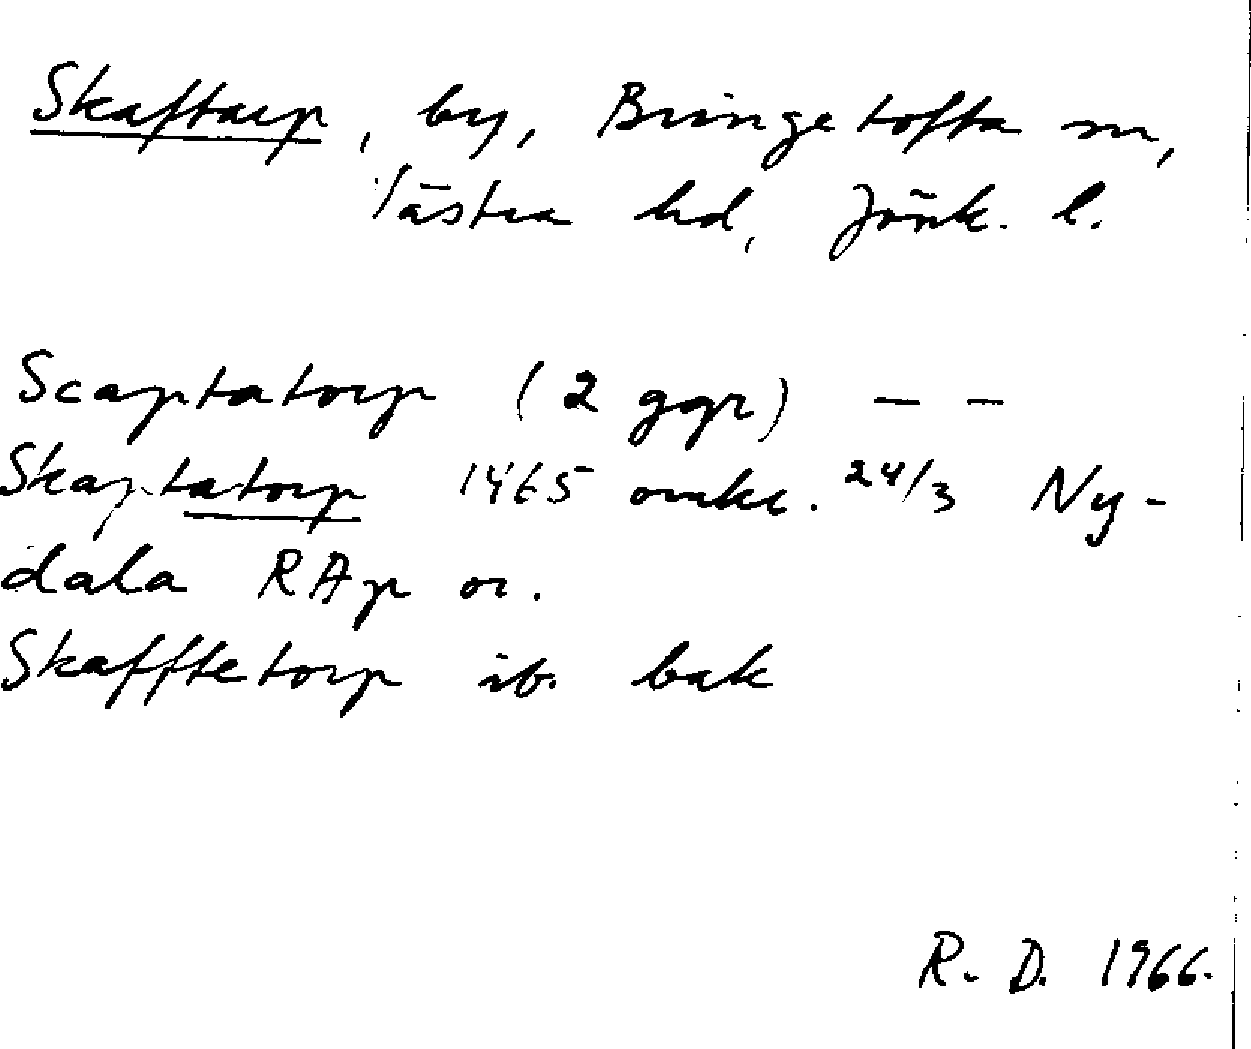 Skaftarp, by, Bringetofta sn,
Västra hd, Jönk. l.
Scaptatorp (2 ggr) – –
Skaptatorp 1465 omkr. 24/3 Ny-
dala RAp or.
Skafftetorp ib. bak
R. D. 1966.